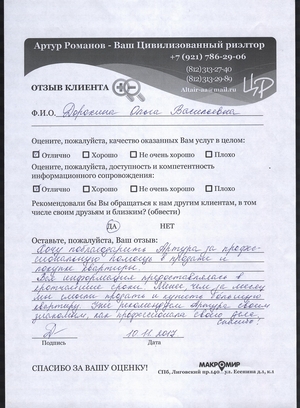 Артур Романов - Ваш Цивилизованный риэлтор
+7 (921) 786-29-06
(812)313-27-40
(812)313-29-89
Altair-as@mail.ru
ЦР
ОТЗЫВ КЛИЕНТА
Ф.И.О. Дорохина Ольга Васильевна
Оцените, пожалуйста, качество оказанных Вам услуг в целом:
Отлично Хорошо Не очень хорошо Плохо
Оцените, пожалуйста, доступность и компетентность
информационного сопровождения:
Отлично Хорошо Не очень хорошо Плохо
Рекомендовали бы Вы обращаться к нам другим клиентам, в том
числе своим друзьям и близким? (обвести)
ДА НЕТ
Оставьте, пожалуйста, Ваш отзыв:
Хочу поблагодарить Артура за профес-
сиональную помощь в продаже и
покупке квартиры.
Вся информация предоставлялась в
кротчайшие сроки. Менее чем за месяц
мы смогли продать и купить большую
квартиру. Уже рекомендую Артура своим
знакомым, как профессионала своего дела.
Спасибо!
10.11.2017
Подпись Дата
СПАСИБО ЗА ВАШУ ОЦЕНКУ!
МАКРОМИР
СПб, Лиговский пр.140 . ул. Есенина д.1, к.1